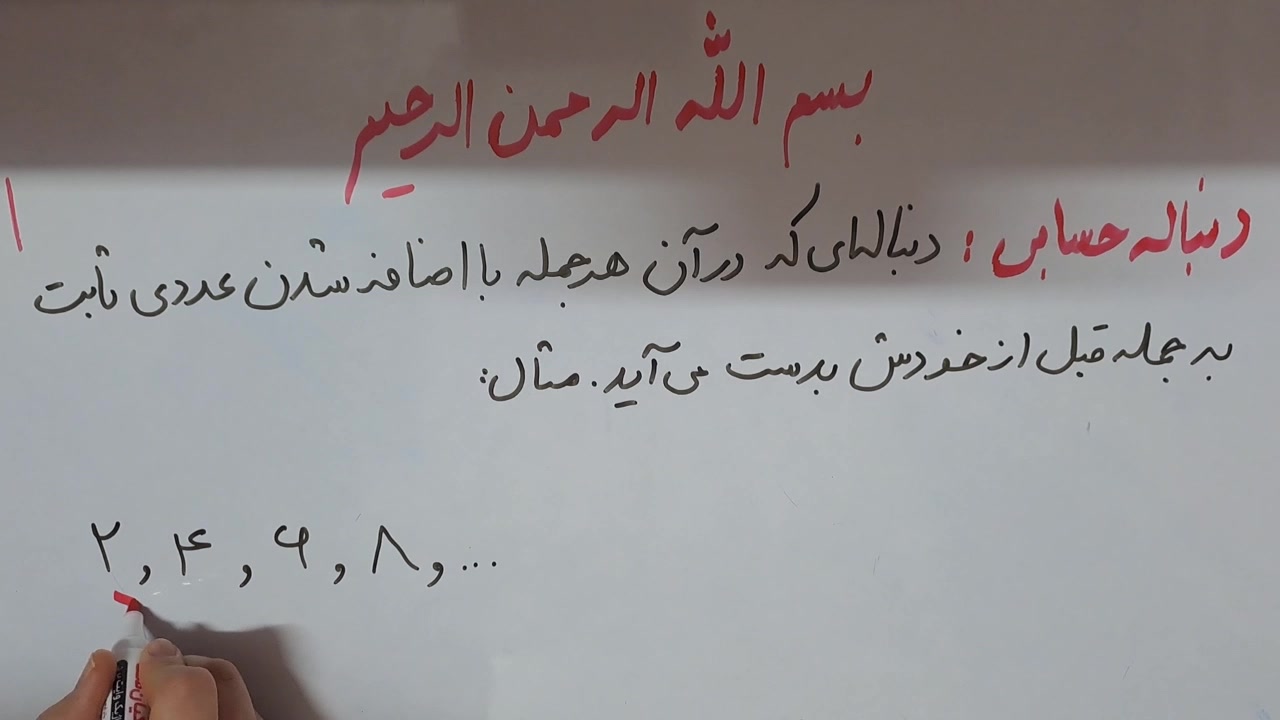 بسم الله الرحمن الرحیم
دنباله حسابی : دنباله‌ای که در آن هر جمله با اضافه شدن عددی ثابت
به جمله قبل از خودش بدست می‌آید. مثال:
۲, ۴, ۶, ۸, ...